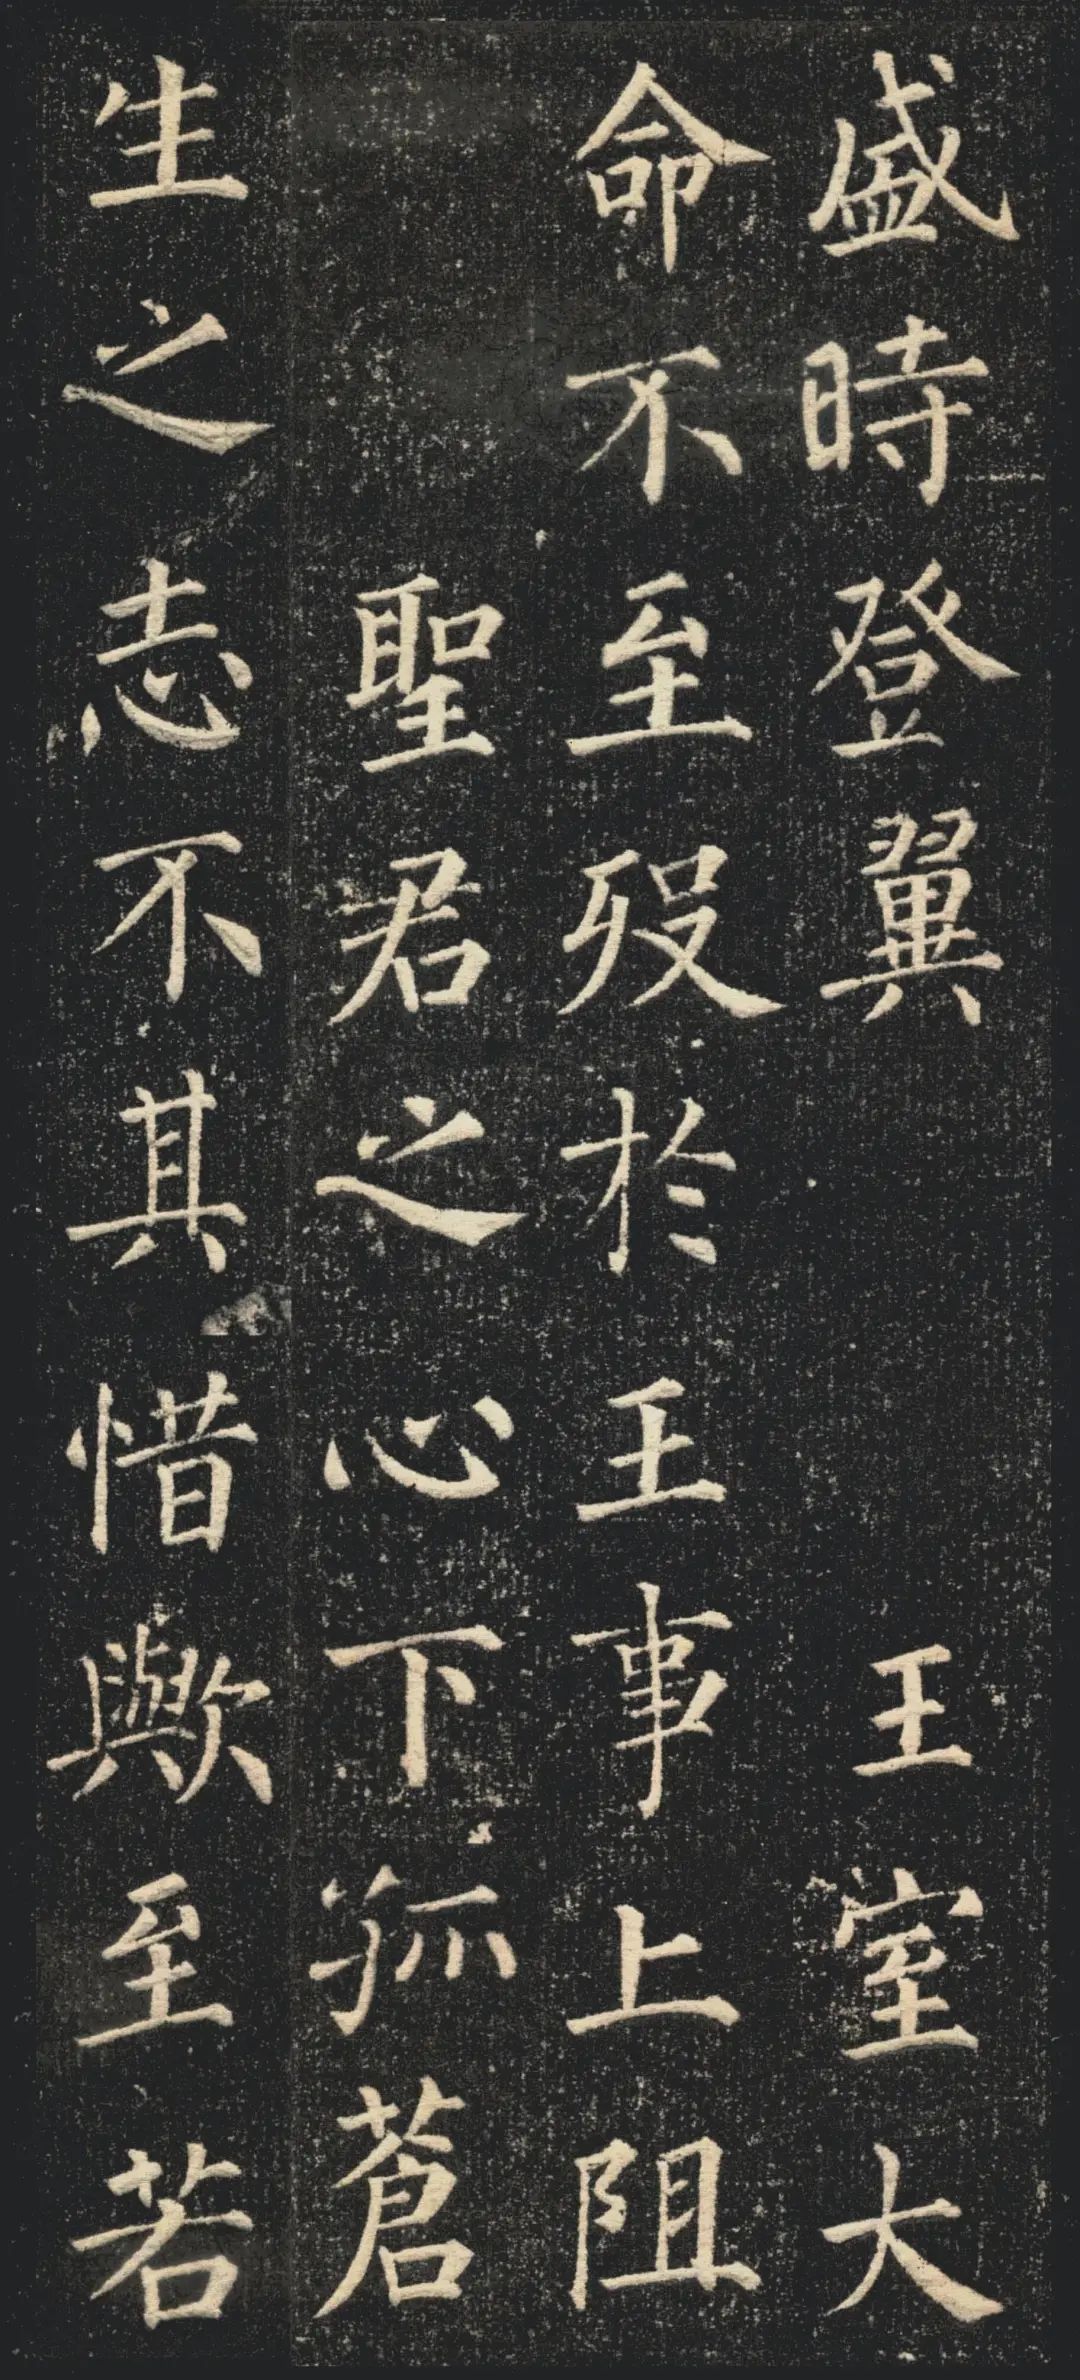 盛時登翼王室大
命不至歿於王事上阻
聖君之心下孤蒼
生之志不其惜歟至若